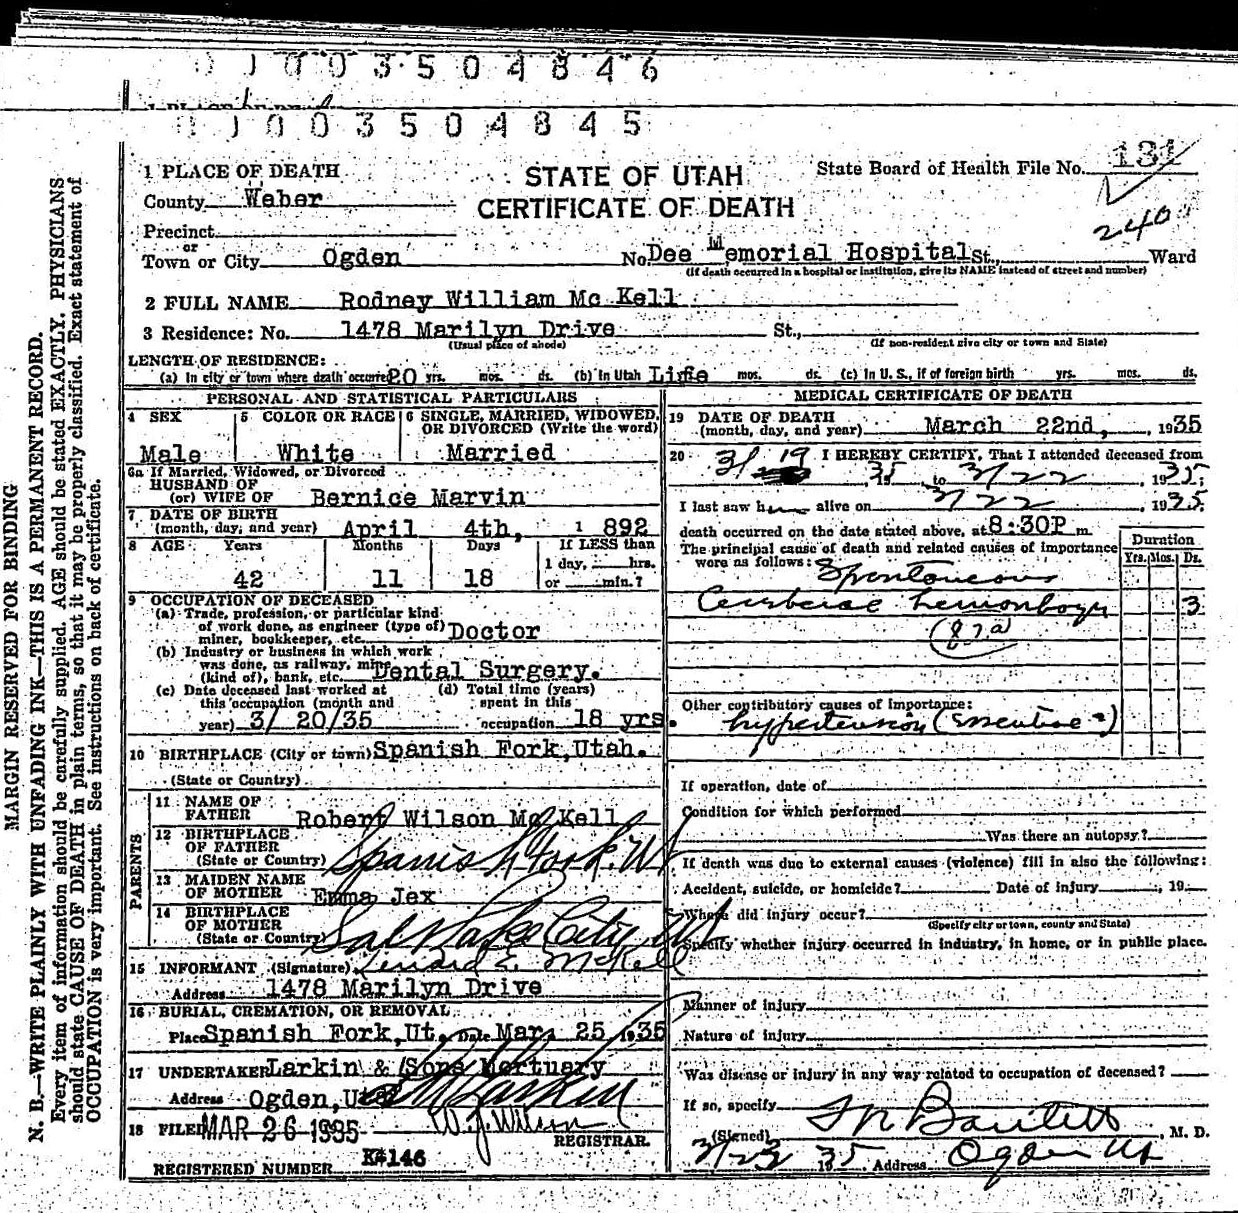 0 0 0 0 3 5 0 4 8 4 6
0 0 0 0 3 5 0 4 8 4 5
MARGIN RESERVED FOR BINDING
N. B.—WRITE PLAINLY WITH UNFADING INK—THIS IS A PERMANENT RECORD.
Every item of information should be carefully supplied. AGE should be stated EXACTLY. PHYSICIANS
should state CAUSE OF DEATH in plain terms, so that it may be properly classified. Exact statement of
OCCUPATION is very important. See instructions on back of certificate.
STATE OF UTAH
CERTIFICATE OF DEATH
State Board of Health File No. 131
240
1 PLACE OF DEATH
County Weber
Precinct
or
Town or City Ogden No Dee Memorial Hospital St., Ward
(If death occurred in a hospital or institution, give its NAME instead of street and number)
2 FULL NAME Rodney William Mc Kell
3 Residence: No. 1478 Marilyn Drive St.,
(Usual place of abode) (If non-resident give city or town and State)
LENGTH OF RESIDENCE:
(a) In city or town where death occurred 20 yrs. mos. ds. (b) In Utah Life mos. ds. (c) In U. S., if of foreign birth yrs. mos. ds.
PERSONAL AND STATISTICAL PARTICULARS
4 SEX Male
5 COLOR OR RACE White
6 SINGLE, MARRIED, WIDOWED, OR DIVORCED (Write the word) Married
6a If Married, Widowed, or Divorced
HUSBAND OF
(or) WIFE OF Bernice Marvin
7 DATE OF BIRTH
(month, day, and year) April 4th, 1 892
8 AGE Years Months Days If LESS than
1 day, hrs.
42 11 18 or min.?
9 OCCUPATION OF DECEASED
(a) Trade, profession, or particular kind
of work done, as engineer (type of)
miner, bookkeeper, etc. Doctor
(b) Industry or business in which work
was done, as railway, mine
(kind of), bank, etc. Dental Surgery.
(c) Date deceased last worked at
this occupation (month and
year) 3/ 20/35
(d) Total time (years)
spent in this
occupation 18 yrs.
10 BIRTHPLACE (City or town) Spanish Fork, Utah.
(State or Country)
PARENTS
11 NAME OF
FATHER Robert Wilson Mc Kell
12 BIRTHPLACE
OF FATHER
(State or Country) Spanish Fork. Ut
13 MAIDEN NAME
OF MOTHER Emma Jex
14 BIRTHPLACE
OF MOTHER
(State or Country) Salt Lake City Ut
15 INFORMANT (Signature) E. McKell
Address 1478 Marilyn Drive
16 BURIAL, CREMATION, OR REMOVAL
Place Spanish Fork, Ut. Date Mar. 25 1935
17 UNDERTAKER Larkin & Sons Mortuary
Address Ogden, Utah Larkin
18 FILED MAR 26 1935 W. J. Wilson
REGISTRAR.
REGISTERED NUMBER K#146
MEDICAL CERTIFICATE OF DEATH
19 DATE OF DEATH
(month, day, and year) March 22nd, 1935
20 I HEREBY CERTIFY, That I attended deceased from
3/19 35, to 3/22, 1935;
I last saw him alive on 3/22, 1935;
death occurred on the date stated above, at 8:30P m.
The principal cause of death and related causes of importance
were as follows: Spontaneous
Duration
Yrs. Mos. Ds.
Cerebral hemorrhage 3
(82a)
Other contributory causes of importance:
hypertension (essential?)
If operation, date of
Condition for which performed
Was there an autopsy?
If death was due to external causes (violence) fill in also the following:
Accident, suicide, or homicide? Date of injury , 19
Where did injury occur?
(Specify city or town, county and State)
Specify whether injury occurred in industry, in home, or in public place.
Manner of injury
Nature of injury
Was disease or injury in any way related to occupation of deceased?
If so, specify
(Signed) Bartlett, M. D.
3/23 1935 Address Ogden Ut